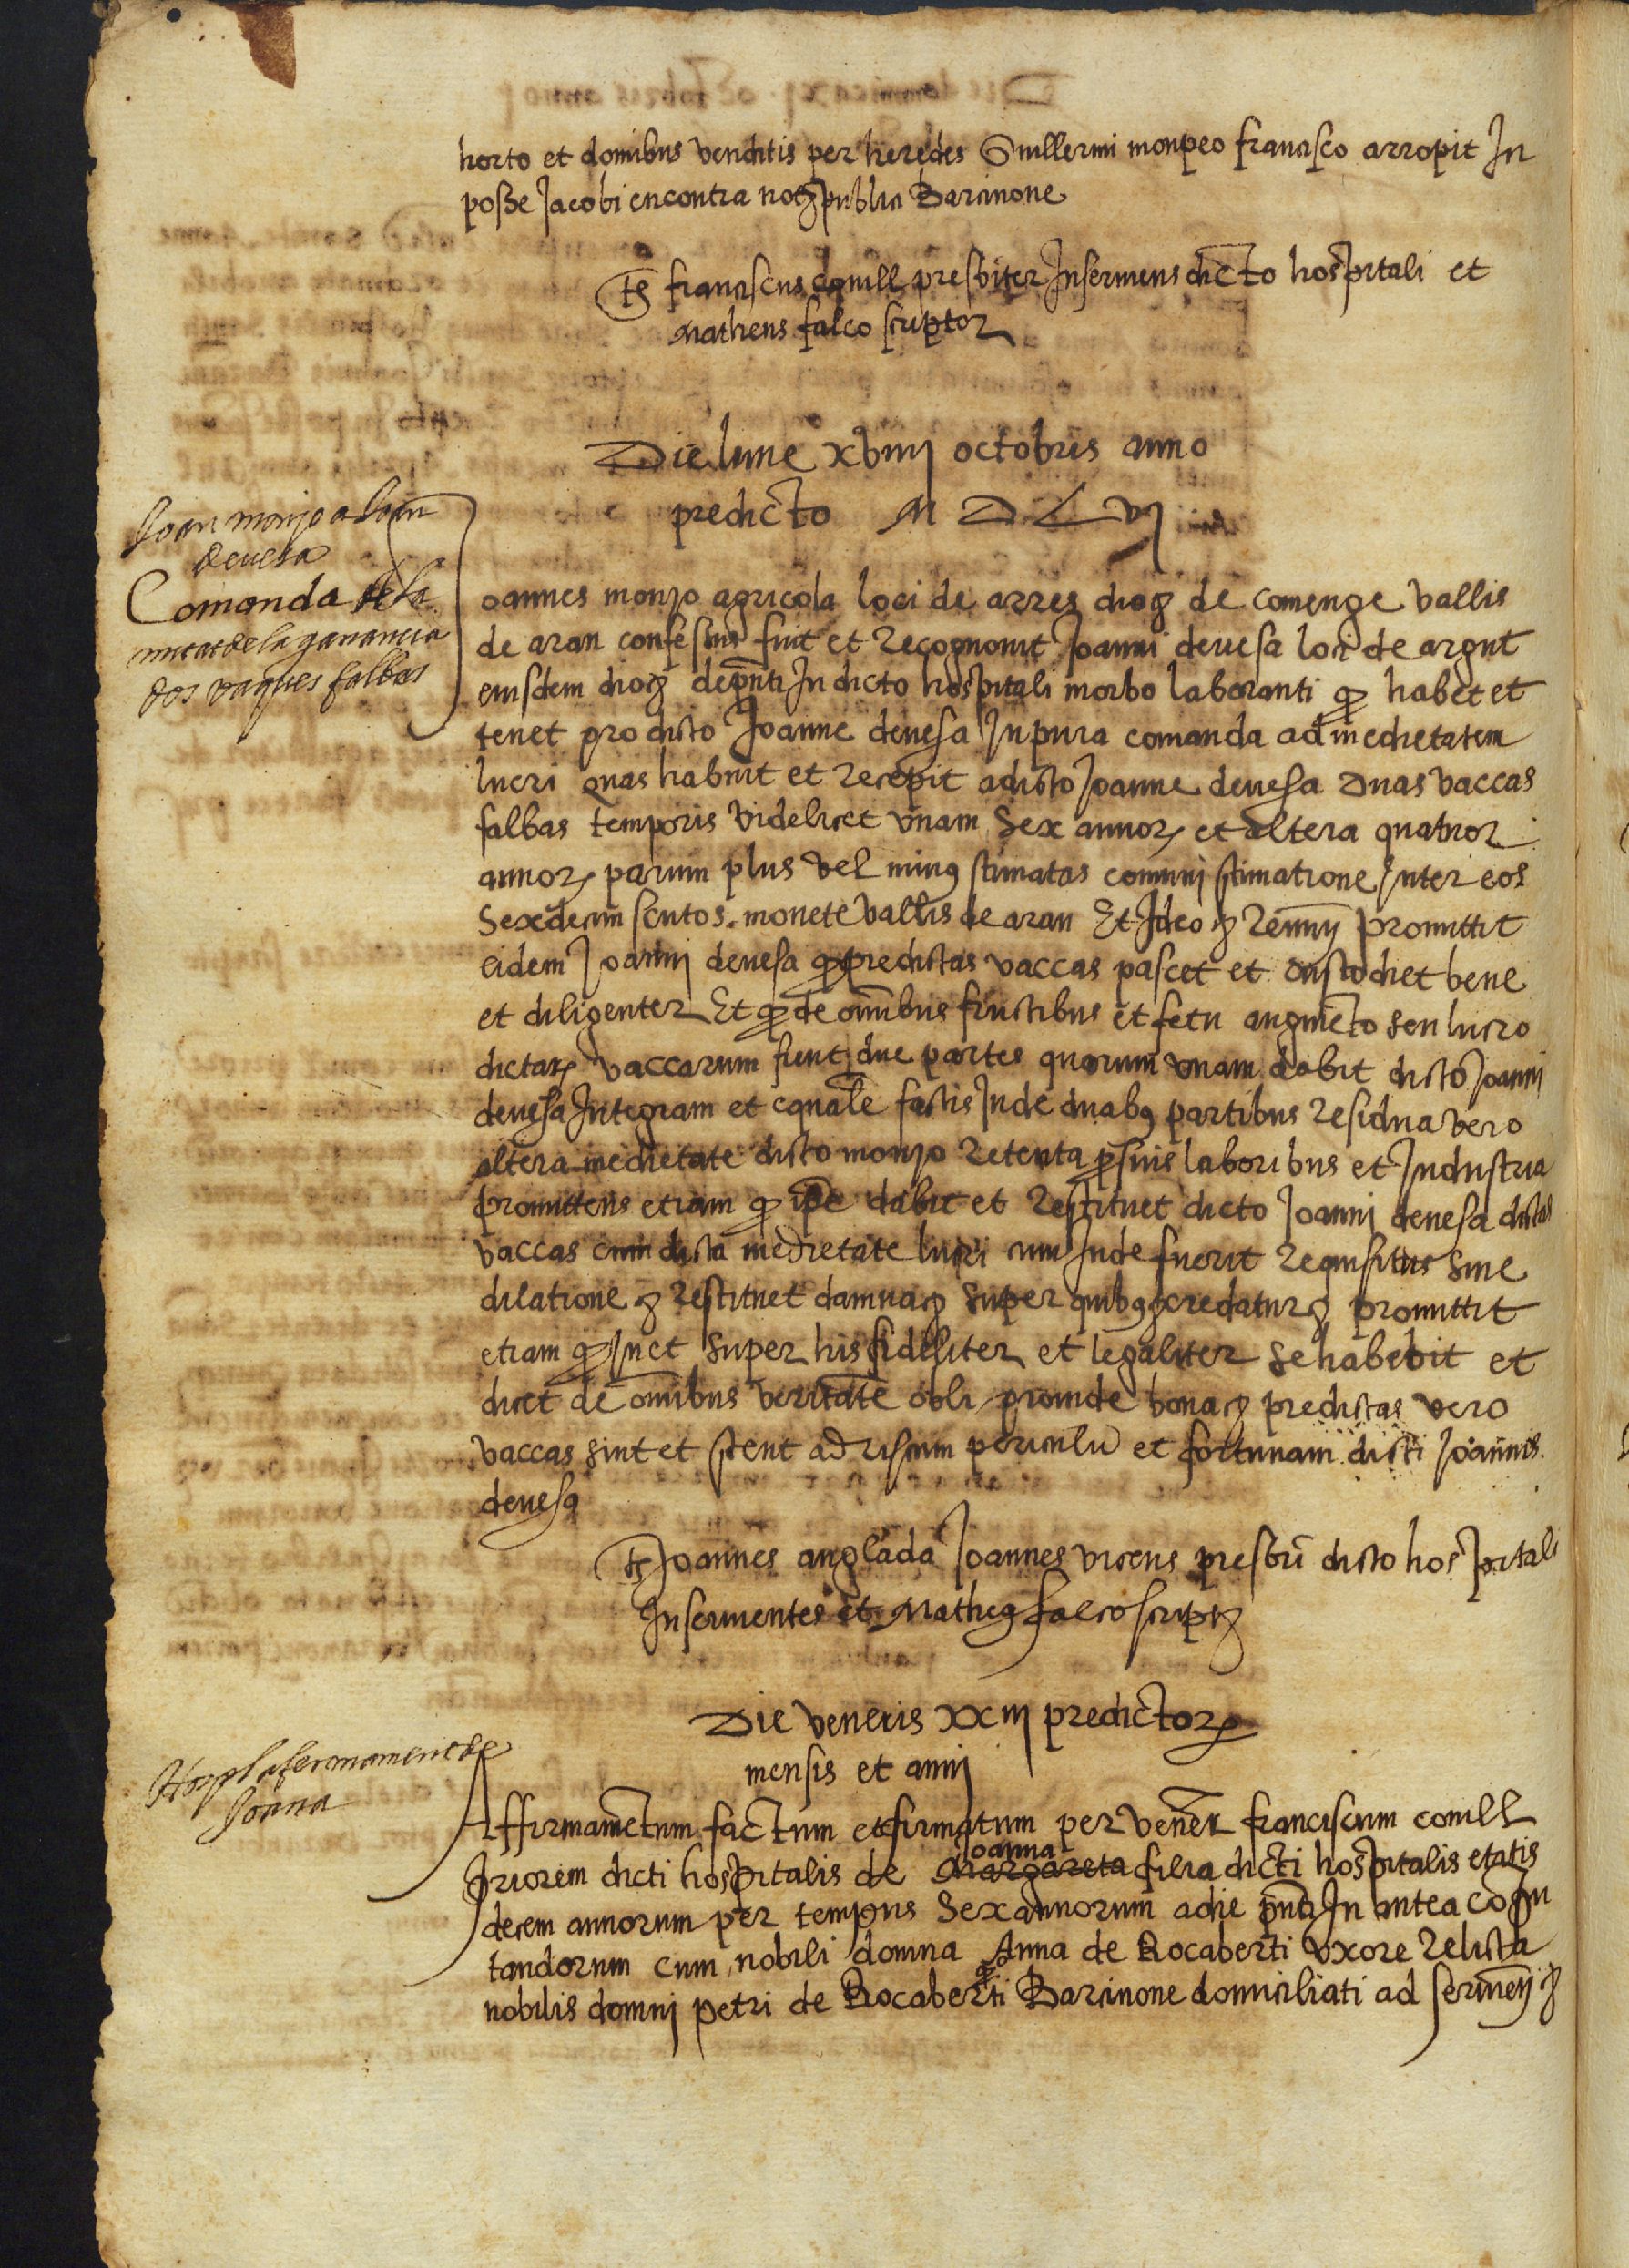 horto et domibus venditis per heredes Guillermi monpeo francisco arropit In
posse Jacobi encontra not publici Barcinone
Ts franciscus conill presbiter Inserviens dicto hospitali et
Matheus falco scriptor
Die lune xviiij octobris anno
predicto M D L vj
Joan monjo a Joan
devesa
Comanda de la
mitat de la ganancia
dos vaques falbas
Joannes monjo agricola loci de arres dioc de comenge vallis
de aran confessus fuit et recognovit Joanni devesa loci de argut
eiusdem dioc depnti In dicto hospitali morbo laboranti q habet et
tenet pro dicto Joanne devesa In pura comanda ad medietatem
lucri quas habuit et recepit a dicto Joanne devesa duas vaccas
falbas temporis videlicet unam sex annor et altera quatuor
annor parum plus vel minus stimatas comuni stimatione Inter eos
sexdecim scutos monete vallis de aran Et Ideo renun promittit
eidem Joanni devesa q predictas vaccas pascet et custodiet bene
et diligenter Et q de omibus fructibus et fetu augmeto seu lucro
dictar vaccarum fient due partes quarum unam dabit dicto Joanni
devesa Integram et equale factis Inde duabus partibus residua vero
altera medietate dicto monjo retenta p suis laboribus et Industria
promittens etiam q ipe dabit et restituet dicto Joanni devesa dictas
vaccas cum dicta medietate lucri cum Inde fuerit requisitus sine
dilatione restituet damna super quibus credatur promittit
etiam q In et super his fideliter et legaliter se habebit et
dicet de omibus veritate obli proinde bona predictas vero
vaccas sint et stent ad risicum periculu et fortunam dicti Joannis
devesa
Ts Joannes anglada Joannes vicens presbri dicto hospitali
Inservientes et Matheus falco script
Die veneris xxiij predictor
mensis et anni
Hospl afermament de
Joana
Affirmametum factum et firmatum per vener franciscum conill
priorem dicti hospitalis de Margareta Joanna filia dicti hospitalis etatis
decem annorum per tempus sex annorum a die pnti In antea copu
tandorum cum nobili domna Anna de Rocaberti uxore relicta
nobilis domni petri de Rocaberti q Barcinone domiciliati ad servien